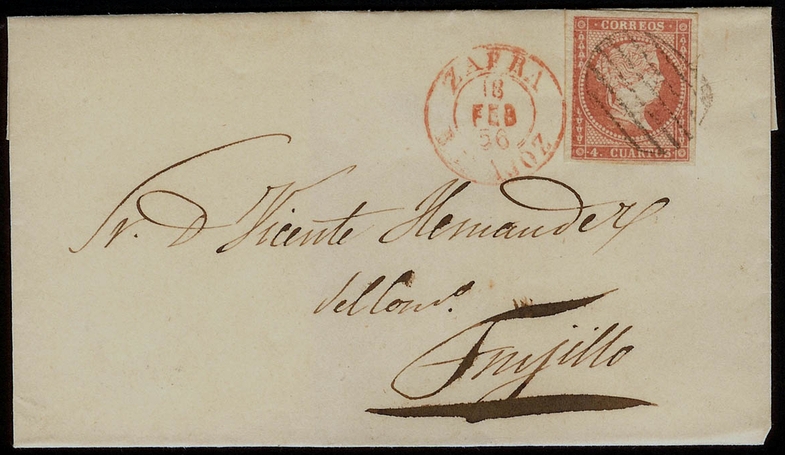 ZAFRA
18
FEB
56
CORREOS
4. CUARTOS
Sr. D. Vicente Hernandez
del Com.º
Trujillo